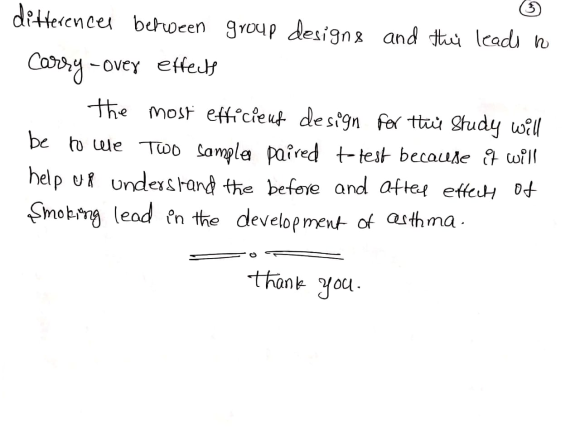 5
differences between group designs and this leads to
Carry-over effects
The most efficient design for this study will
be to use Two samples paired t-test because it will
help us understand the before and after effects of
Smoking lead in the development of asthma.
Thank you.